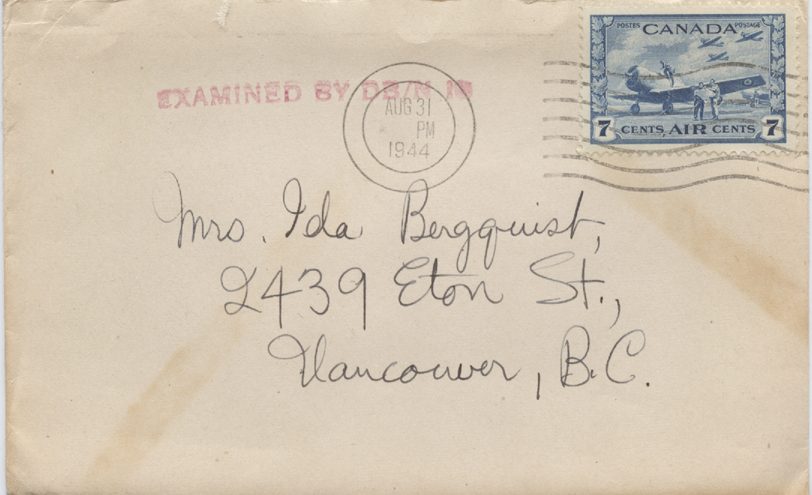 POSTES CANADA POSTAGE
7 CENTS AIR CENTS 7
EXAMINED BY DB/N
AUG 31
PM
1944
Mrs. Ida Bergquist,
2439 Eton St.,
Vancouver, B.C.